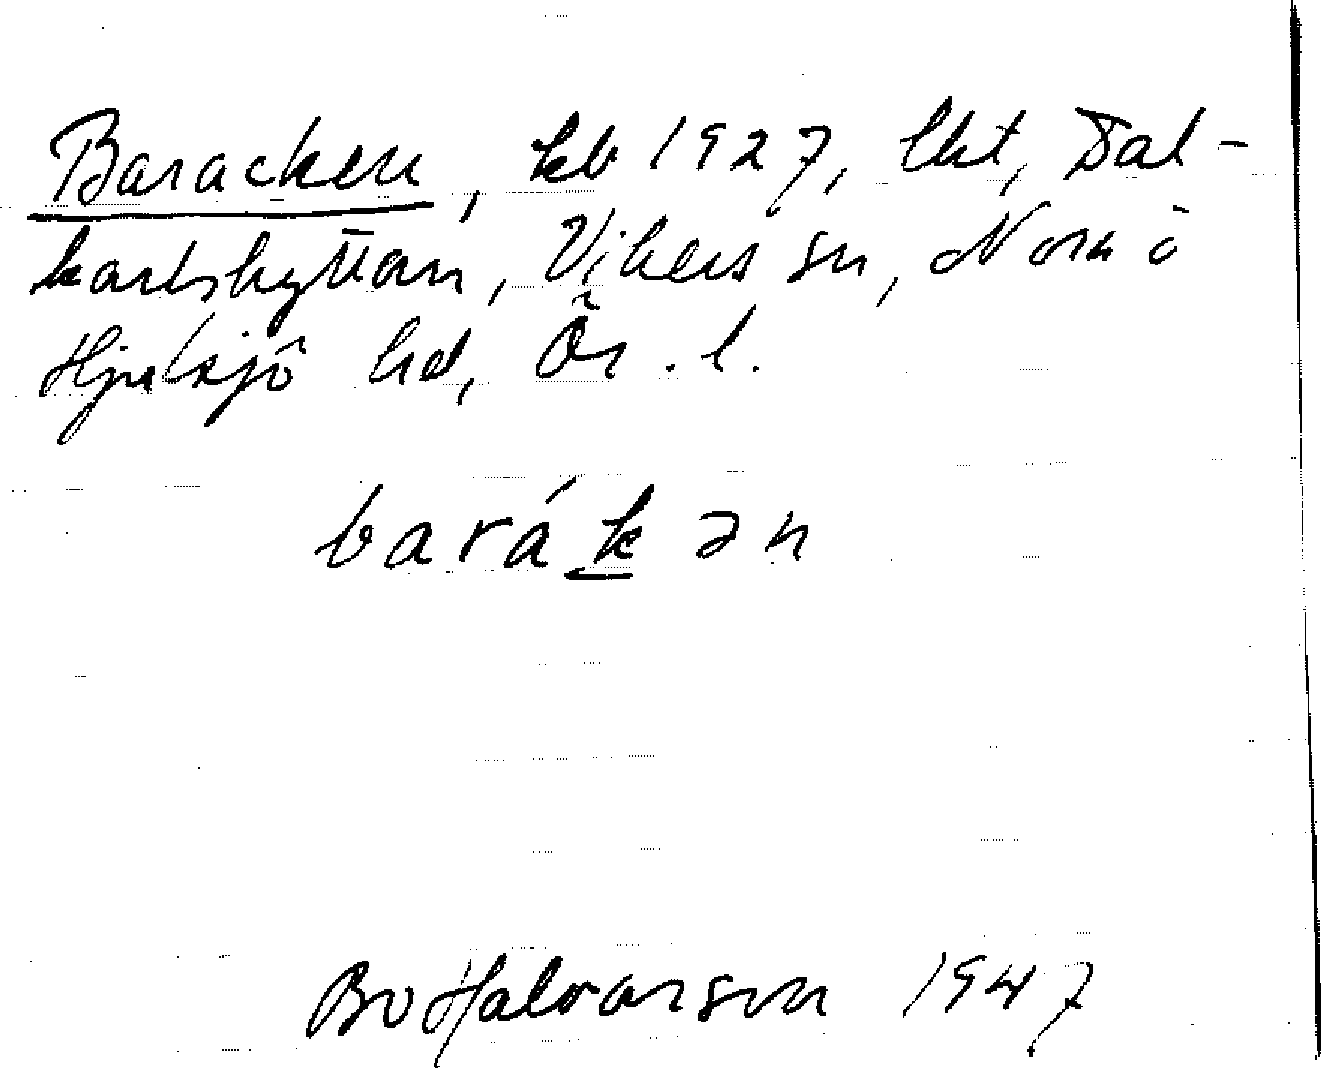 Baracken, kb 1927, lht, Dal-
karlshyttan, Vikers sn, Nora o
Hjulsjö hd, Ör. l.
barákən
Bo Halvarson 1947